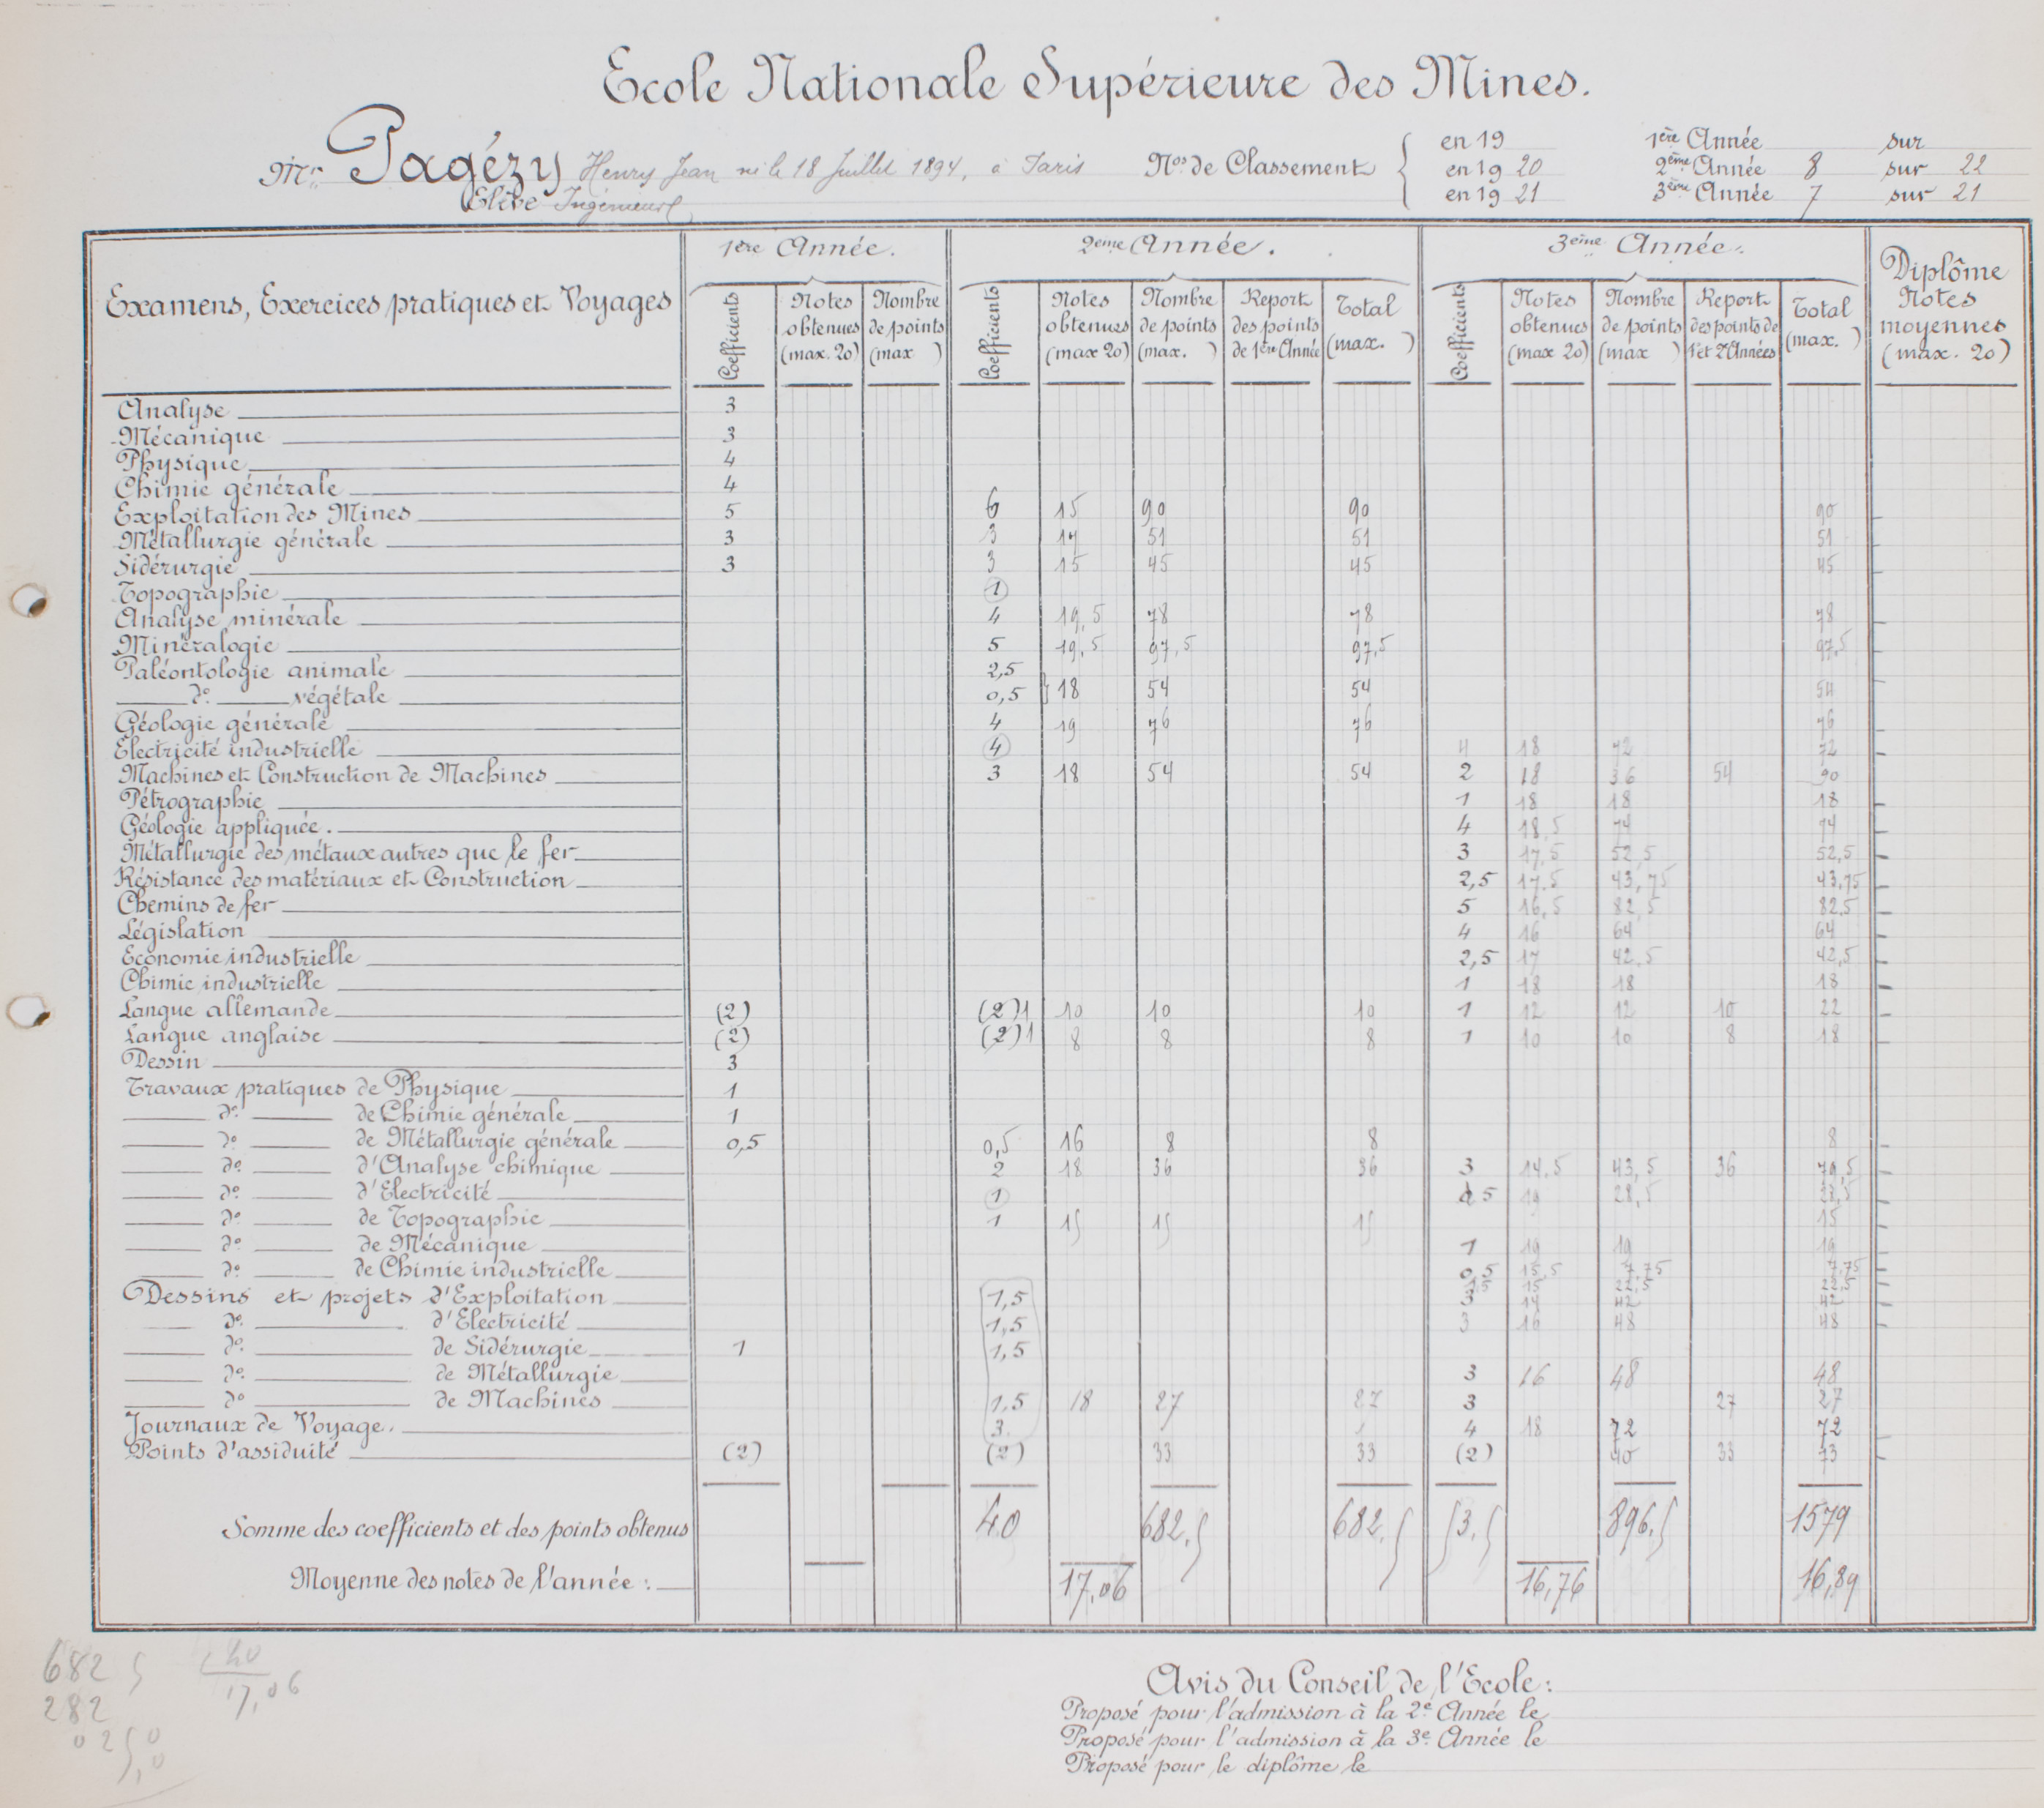 Ecole Nationale Supérieure des Mines.
Mr. Pagézy Henry Jean né le 18 Juillet 1894, à Paris
Elève Ingénieur
Nos. de Classement
en 19 1ère Année sur
en 19 20 2ème Année 8 sur 22
en 19 21 3ème Année 7 sur 21
Examens, Exercices pratiques et Voyages
1ère Année.
2ème Année.
3ème Année.
Diplôme Notes moyennes (max. 20)
Coefficients Notes obtenues (max. 20) Nombre de points (max )
Coefficients Notes obtenues (max 20) Nombre de points (max. ) Report des points de 1ère Année Total (max. )
Coefficients Notes obtenues (max 20) Nombre de points (max ) Report des points de 1e et 2e Années Total (max. )
Analyse 3
Mécanique 3
Physique 4
Chimie générale 4
Exploitation des Mines 5 6 15 90 90 90
Métallurgie générale 3 3 17 51 51 51
Sidérurgie 3 3 15 45 45 45
Topographie 1
Analyse minérale 4 19,5 78 78 78
Minéralogie 5 19,5 97,5 97,5 97,5
Paléontologie animale 2,5
do. végétale 0,5 18 54 54 54
Géologie générale 4 19 76 76 76
Electricité industrielle 4 4 18 72 72
Machines et Construction de Machines 3 18 54 54 2 18 36 54 90
Pétrographie 1 18 18 18
Géologie appliquée. 4 18,5 74 74
Métallurgie des métaux autres que le fer 3 17,5 52,5 52,5
Résistance des matériaux et Construction 2,5 17,5 43,75 43,75
Chemins de fer 5 16,5 82,5 82,5
Législation 4 16 64 64
Economie industrielle 2,5 17 42,5 42,5
Chimie industrielle 1 18 18 18
Langue allemande (2) (2) 1 10 10 10 1 12 12 10 22
Langue anglaise (2) (2) 1 8 8 8 1 10 10 8 18
Dessin 3
Travaux pratiques de Physique 1
do. de Chimie générale 1
do. de Métallurgie générale 0,5 0,5 16 8 8 8
do. d'Analyse chimique 2 18 36 36 3 14,5 43,5 36 79,5
do. d'Electricité 1 1,5 19 28,5 28,5
do. de Topographie 1 15 15 15 15
do. de Mécanique 1 19 19 19
do. de Chimie industrielle 0,5 15,5 7,75 7,75
1,5 15 22,5 22,5
Dessins et projets d'Exploitation 1,5 3 14 42 42
do. d'Electricité 1,5 3 16 48 48
do. de Sidérurgie 1 1,5
do. de Métallurgie 3 16 48 48
do. de Machines 1,5 18 27 27 3 27 27
Journaux de Voyage. 3 4 18 72 72
Points d'assiduité (2) (2) 33 33 (2) 40 33 73
Somme des coefficients et des points obtenus 40 682,5 682,5 53,5 896,5 1579
Moyenne des notes de l'année : 17,06 16,76 16,89
682 5 40
282 17,06
0250
5,0
Avis du Conseil de l'Ecole :
Proposé pour l'admission à la 2e. Année le
Proposé pour l'admission à la 3e. Année le
Proposé pour le diplôme le